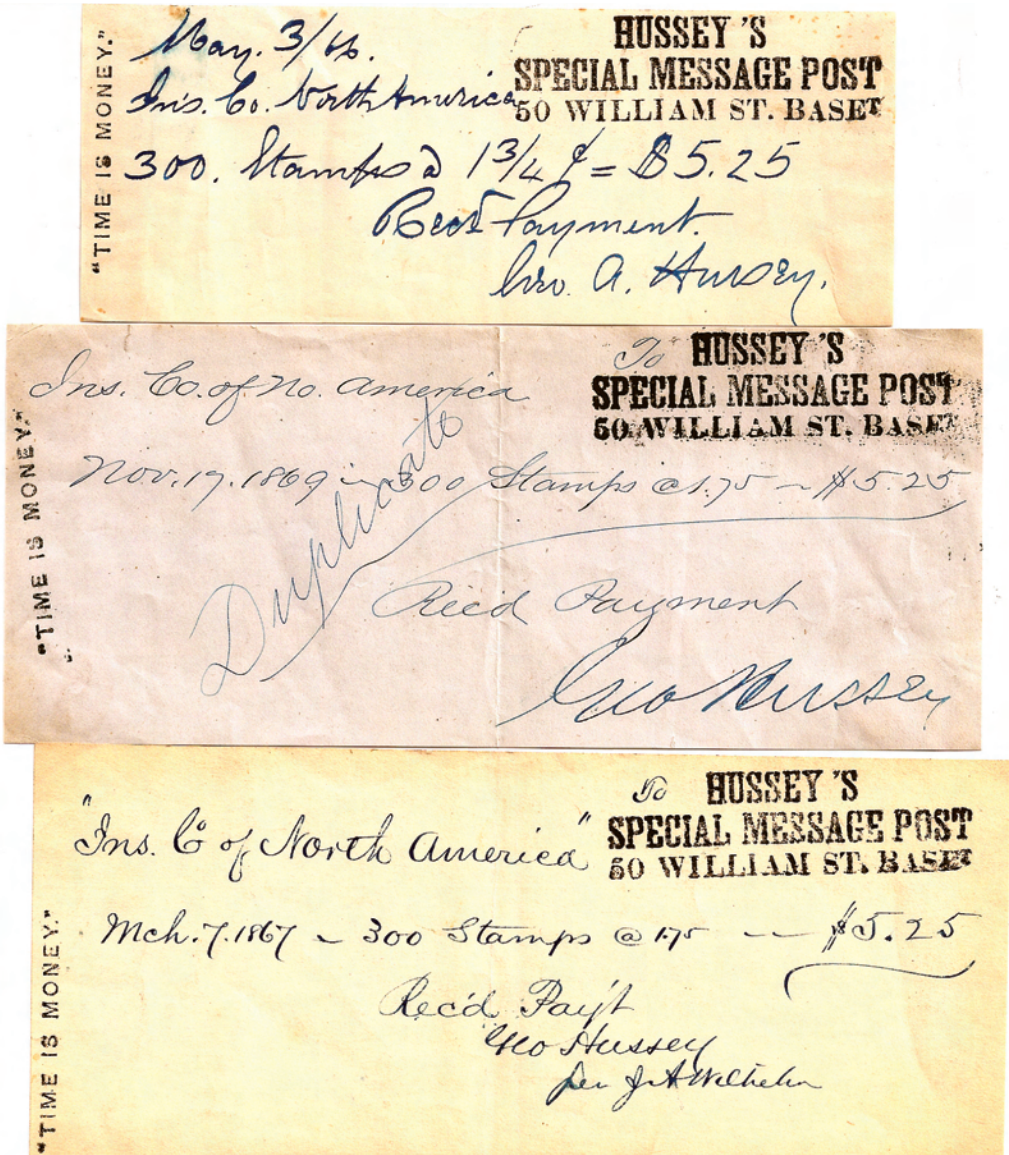 "TIME IS MONEY."
May. 3/66.
HUSSEY'S
SPECIAL MESSAGE POST
50 WILLIAM ST. BASET
Ins. Co. North America
300. Stamps @ 1 3/4 ¢ = $5.25
Recd Payment.
Geo. A. Hussey.
"TIME IS MONEY."
To HUSSEY'S
SPECIAL MESSAGE POST
50 WILLIAM ST. BASET
Ins. Co. of No. America
Nov. 17. 1869 300 Stamps @ 1.75 — $5.25
Duplicate
Recd Payment
Geo Hussey
"TIME IS MONEY."
To HUSSEY'S
SPECIAL MESSAGE POST
50 WILLIAM ST. BASET
"Ins. Co of North America"
Mch. 7. 1867 ~ 300 Stamps @ 1.75 — $5.25
Rec'd Pay't
Geo Hussey
per J A Wilhelm